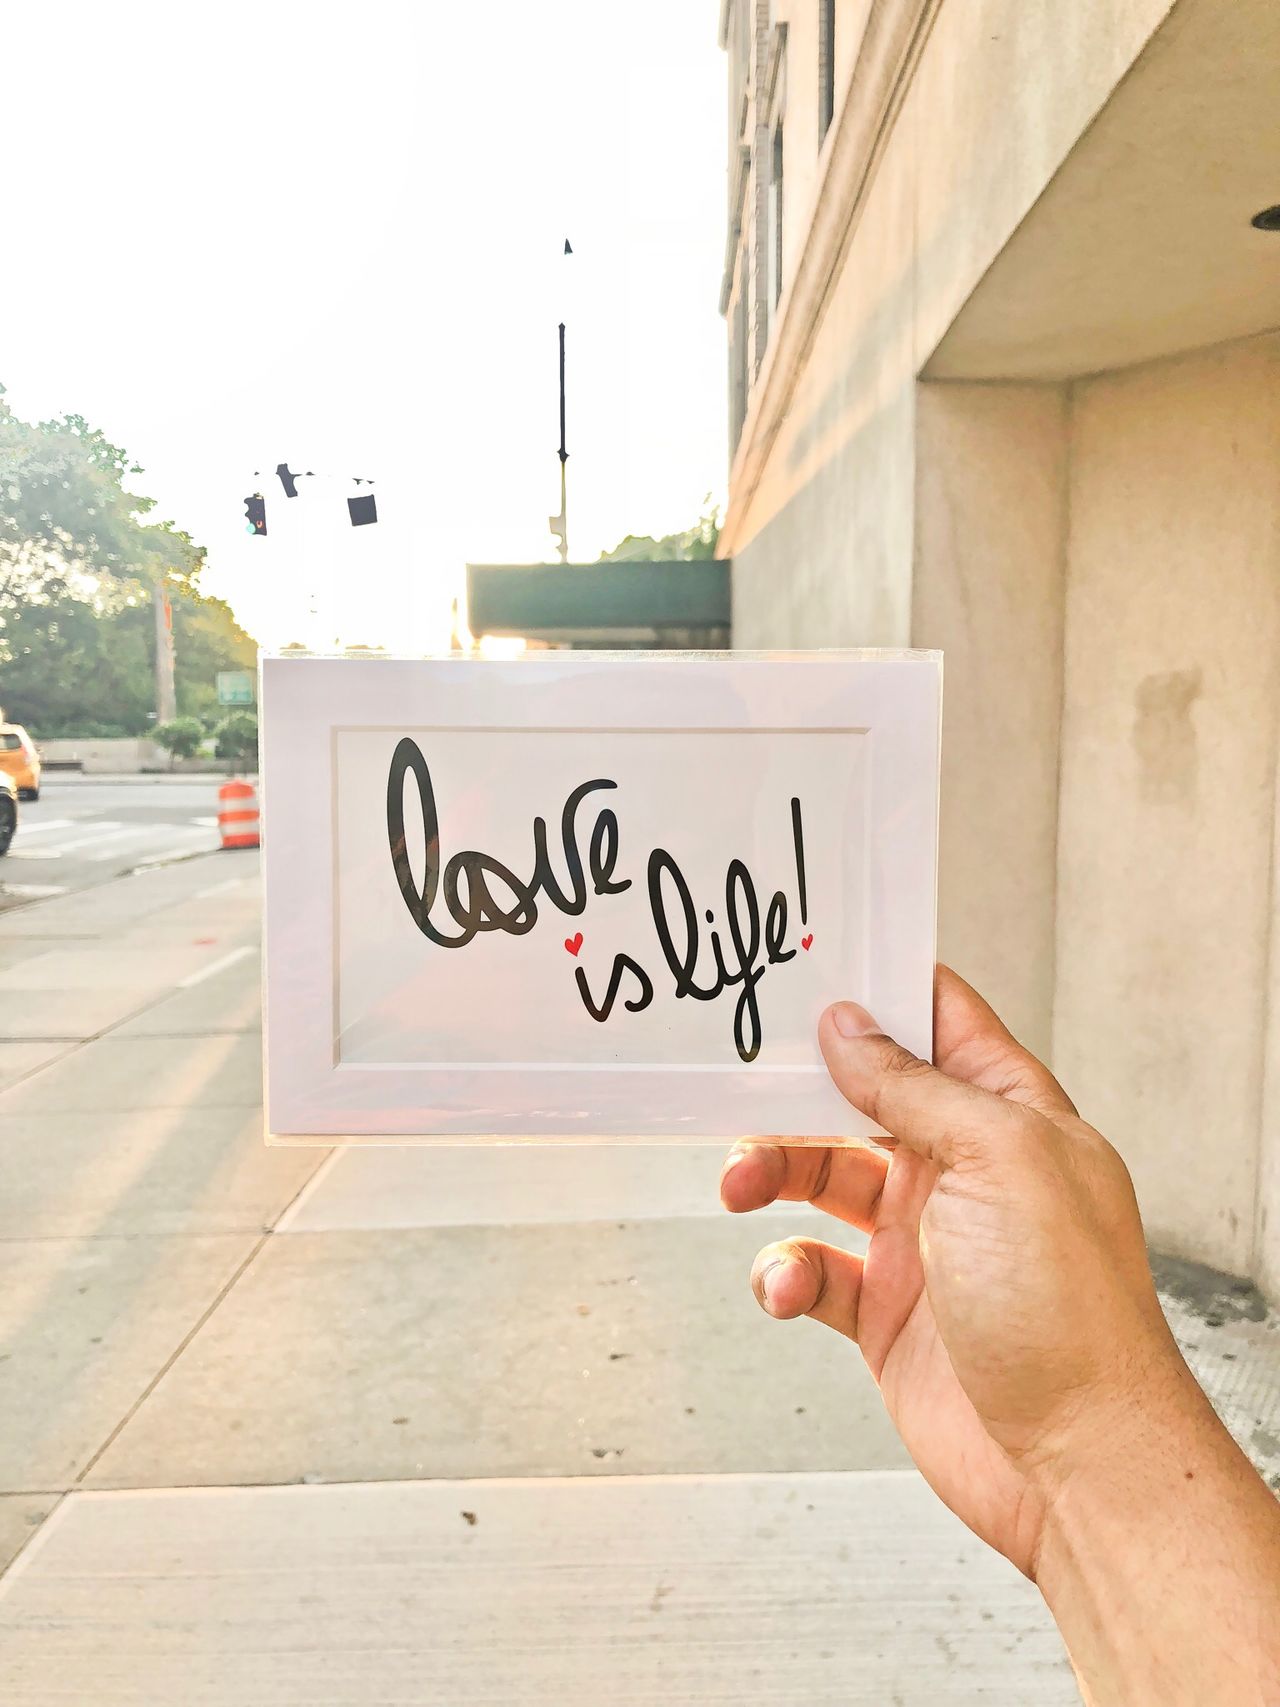 love
is life!